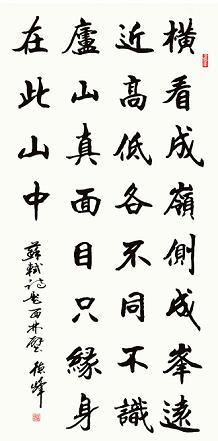 橫看成嶺側成峯遠
近高低各不同不識
廬山真面目只緣身
在此山中
蘇軾詩題西林壁